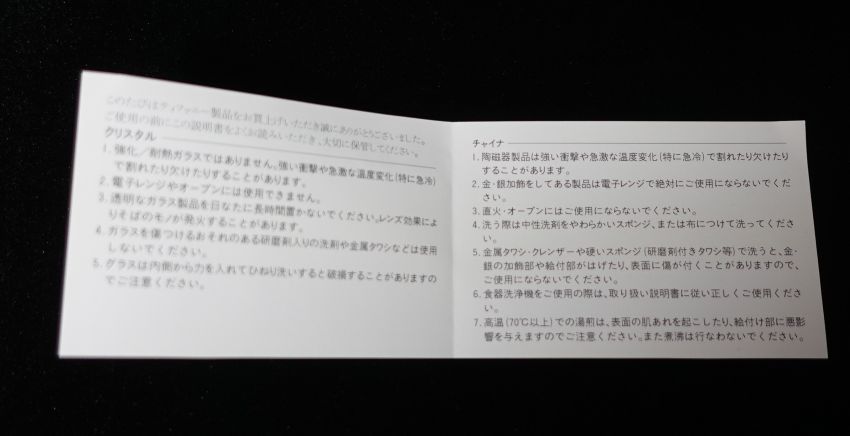 このたびはティファニー製品をお買上げいただき誠にありがとうございました。
ご使用の前にこの説明書をよくお読みいただき、大切に保管してください。
クリスタル
1. 強化／耐熱ガラスではありません。強い衝撃や急激な温度変化(特に急冷)
で割れたり欠けたりすることがあります。
2. 電子レンジやオーブンには使用できません。
3. 透明なガラス製品を日なたに長時間置かないでください。レンズ効果によ
りそばのモノが発火することがあります。
4. ガラスを傷つけるおそれのある研磨剤入りの洗剤や金属タワシなどは使用
しないでください。
5. グラスは内側から力を入れてひねり洗いすると破損することがありますの
でご注意ください。
チャイナ
1. 陶磁器製品は強い衝撃や急激な温度変化(特に急冷)で割れたり欠けたり
することがあります。
2. 金・銀加飾をしてある製品は電子レンジで絶対にご使用にならないでくだ
さい。
3. 直火・オーブンにはご使用にならないでください。
4. 洗う際は中性洗剤をやわらかいスポンジ、または布につけて洗ってくださ
い。
5. 金属タワシ・クレンザーや硬いスポンジ(研磨剤付きタワシ等)で洗うと、金・
銀の加飾部や絵付部がはげたり、表面に傷が付くことがありますので、
ご使用にならないでください。
6. 食器洗浄機をご使用の際は、取り扱い説明書に従い正しくご使用くださ
い。
7. 高温(70℃以上)での湯煎は、表面の肌あれを起こしたり、絵付け部に悪影
響を与えますのでご注意ください。また煮沸は行なわないでください。